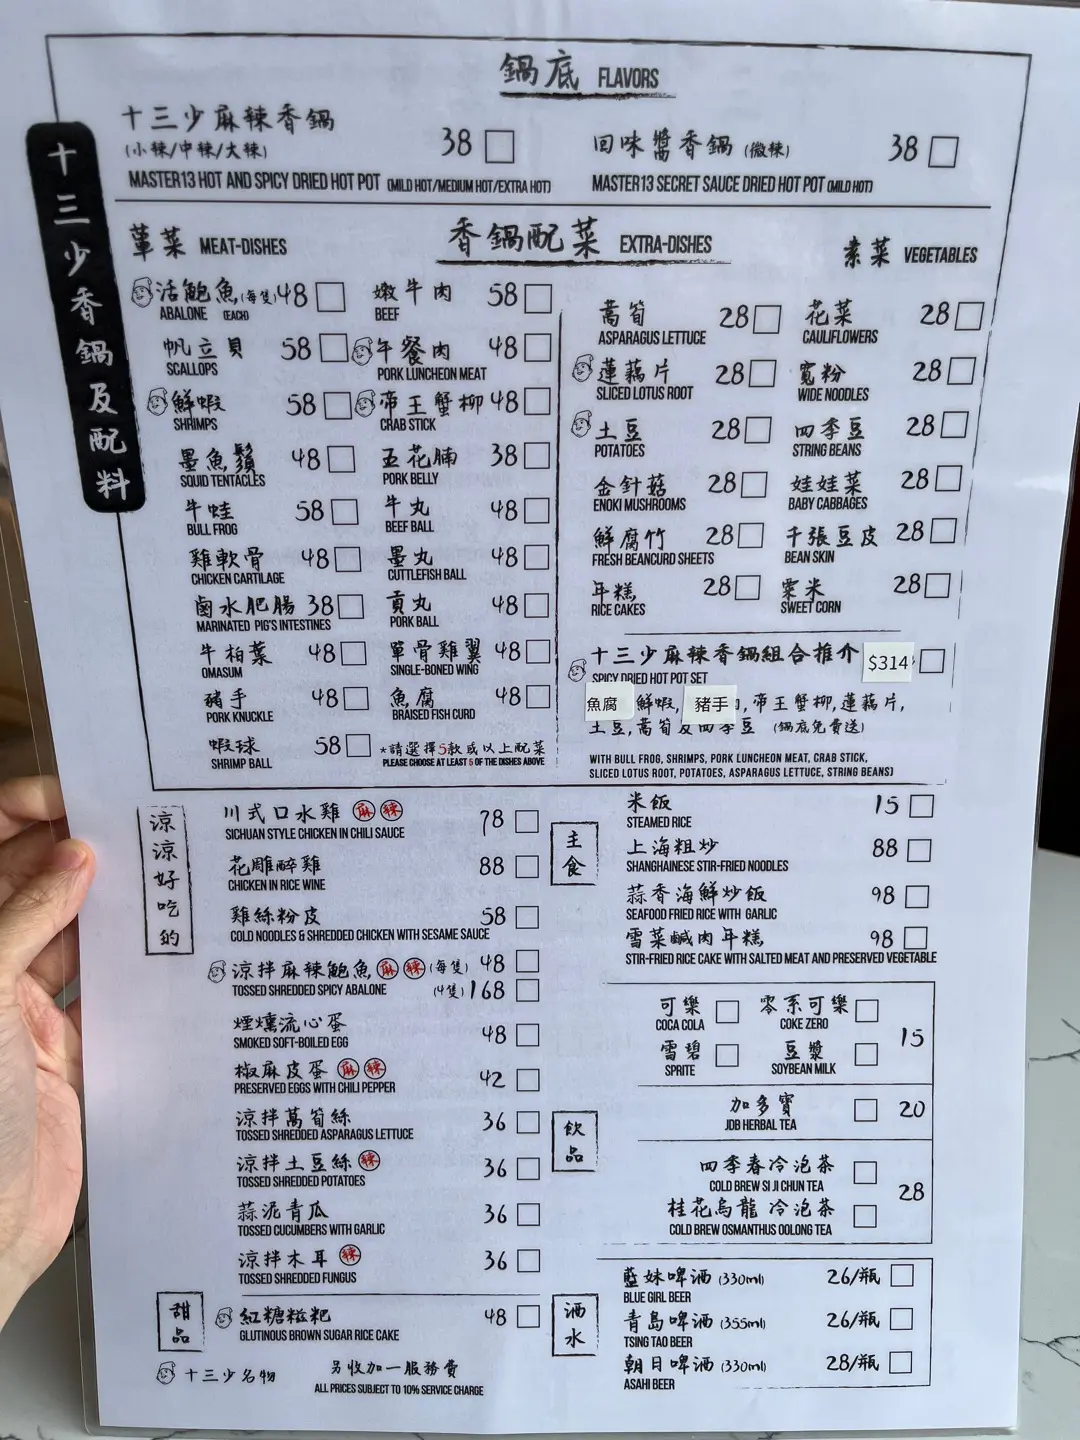 鍋底 FLAVORS
十三少麻辣香鍋 38
(小辣/中辣/大辣)
MASTER13 HOT AND SPICY DRIED HOT POT (MILD HOT/MEDIUM HOT/EXTRA HOT)
回味醬香鍋 (微辣) 38
MASTER13 SECRET SAUCE DRIED HOT POT (MILD HOT)
十三少香鍋及配料
香鍋配菜 EXTRA-DISHES
葷菜 MEAT-DISHES
活鮑魚(每隻) 48
ABALONE (EACH)
帆立貝 58
SCALLOPS
鮮蝦 58
SHRIMPS
墨魚鬚 48
SQUID TENTACLES
牛蛙 58
BULL FROG
雞軟骨 48
CHICKEN CARTILAGE
鹵水肥腸 38
MARINATED PIG'S INTESTINES
牛柏葉 48
OMASUM
豬手 48
PORK KNUCKLE
蝦球 58
SHRIMP BALL
嫩牛肉 58
BEEF
午餐肉 48
PORK LUNCHEON MEAT
帝王蟹柳 48
CRAB STICK
五花腩 38
PORK BELLY
牛丸 48
BEEF BALL
墨丸 48
CUTTLEFISH BALL
貢丸 48
PORK BALL
單骨雞翼 48
SINGLE-BONED WING
魚腐 48
BRAISED FISH CURD
*請選擇5款或以上配菜
PLEASE CHOOSE AT LEAST 5 OF THE DISHES ABOVE
素菜 VEGETABLES
萵筍 28
ASPARAGUS LETTUCE
蓮藕片 28
SLICED LOTUS ROOT
土豆 28
POTATOES
金針菇 28
ENOKI MUSHROOMS
鮮腐竹 28
FRESH BEANCURD SHEETS
年糕 28
RICE CAKES
花菜 28
CAULIFLOWERS
寬粉 28
WIDE NOODLES
四季豆 28
STRING BEANS
娃娃菜 28
BABY CABBAGES
千張豆皮 28
BEAN SKIN
粟米 28
SWEET CORN
十三少麻辣香鍋組合推介 $314
SPICY DRIED HOT POT SET
魚腐 鮮蝦, 豬手, 帝王蟹柳, 蓮藕片,
土豆, 萵筍及四季豆 (鍋底免費送)
WITH BULL FROG, SHRIMPS, PORK LUNCHEON MEAT, CRAB STICK,
SLICED LOTUS ROOT, POTATOES, ASPARAGUS LETTUCE, STRING BEANS)
涼涼好吃的
川式口水雞 麻 辣 78
SICHUAN STYLE CHICKEN IN CHILI SAUCE
花雕醉雞 88
CHICKEN IN RICE WINE
雞絲粉皮 58
COLD NOODLES & SHREDDED CHICKEN WITH SESAME SAUCE
涼拌麻辣鮑魚 麻 辣 (每隻) 48
TOSSED SHREDDED SPICY ABALONE (4隻) 168
煙燻流心蛋 48
SMOKED SOFT-BOILED EGG
椒麻皮蛋 麻 辣 42
PRESERVED EGGS WITH CHILI PEPPER
涼拌萵筍絲 36
TOSSED SHREDDED ASPARAGUS LETTUCE
涼拌土豆絲 辣 36
TOSSED SHREDDED POTATOES
蒜泥青瓜 36
TOSSED CUCUMBERS WITH GARLIC
涼拌木耳 辣 36
TOSSED SHREDDED FUNGUS
甜品
紅糖糍粑 48
GLUTINOUS BROWN SUGAR RICE CAKE
十三少名物
另收加一服務費
ALL PRICES SUBJECT TO 10% SERVICE CHARGE
主食
米飯 15
STEAMED RICE
上海粗炒 88
SHANGHAINESE STIR-FRIED NOODLES
蒜香海鮮炒飯 98
SEAFOOD FRIED RICE WITH GARLIC
雪菜鹹肉年糕 98
STIR-FRIED RICE CAKE WITH SALTED MEAT AND PRESERVED VEGETABLE
飲品
可樂 零系可樂
COCA COLA COKE ZERO
15
雪碧 豆漿
SPRITE SOYBEAN MILK
加多寶 20
JDB HERBAL TEA
四季春冷泡茶
COLD BREW SI JI CHUN TEA
28
桂花烏龍 冷泡茶
COLD BREW OSMANTHUS OOLONG TEA
酒水
藍妹啤酒 (330ml) 26/瓶
BLUE GIRL BEER
青島啤酒 (355ml) 26/瓶
TSING TAO BEER
朝日啤酒 (330ml) 28/瓶
ASAHI BEER